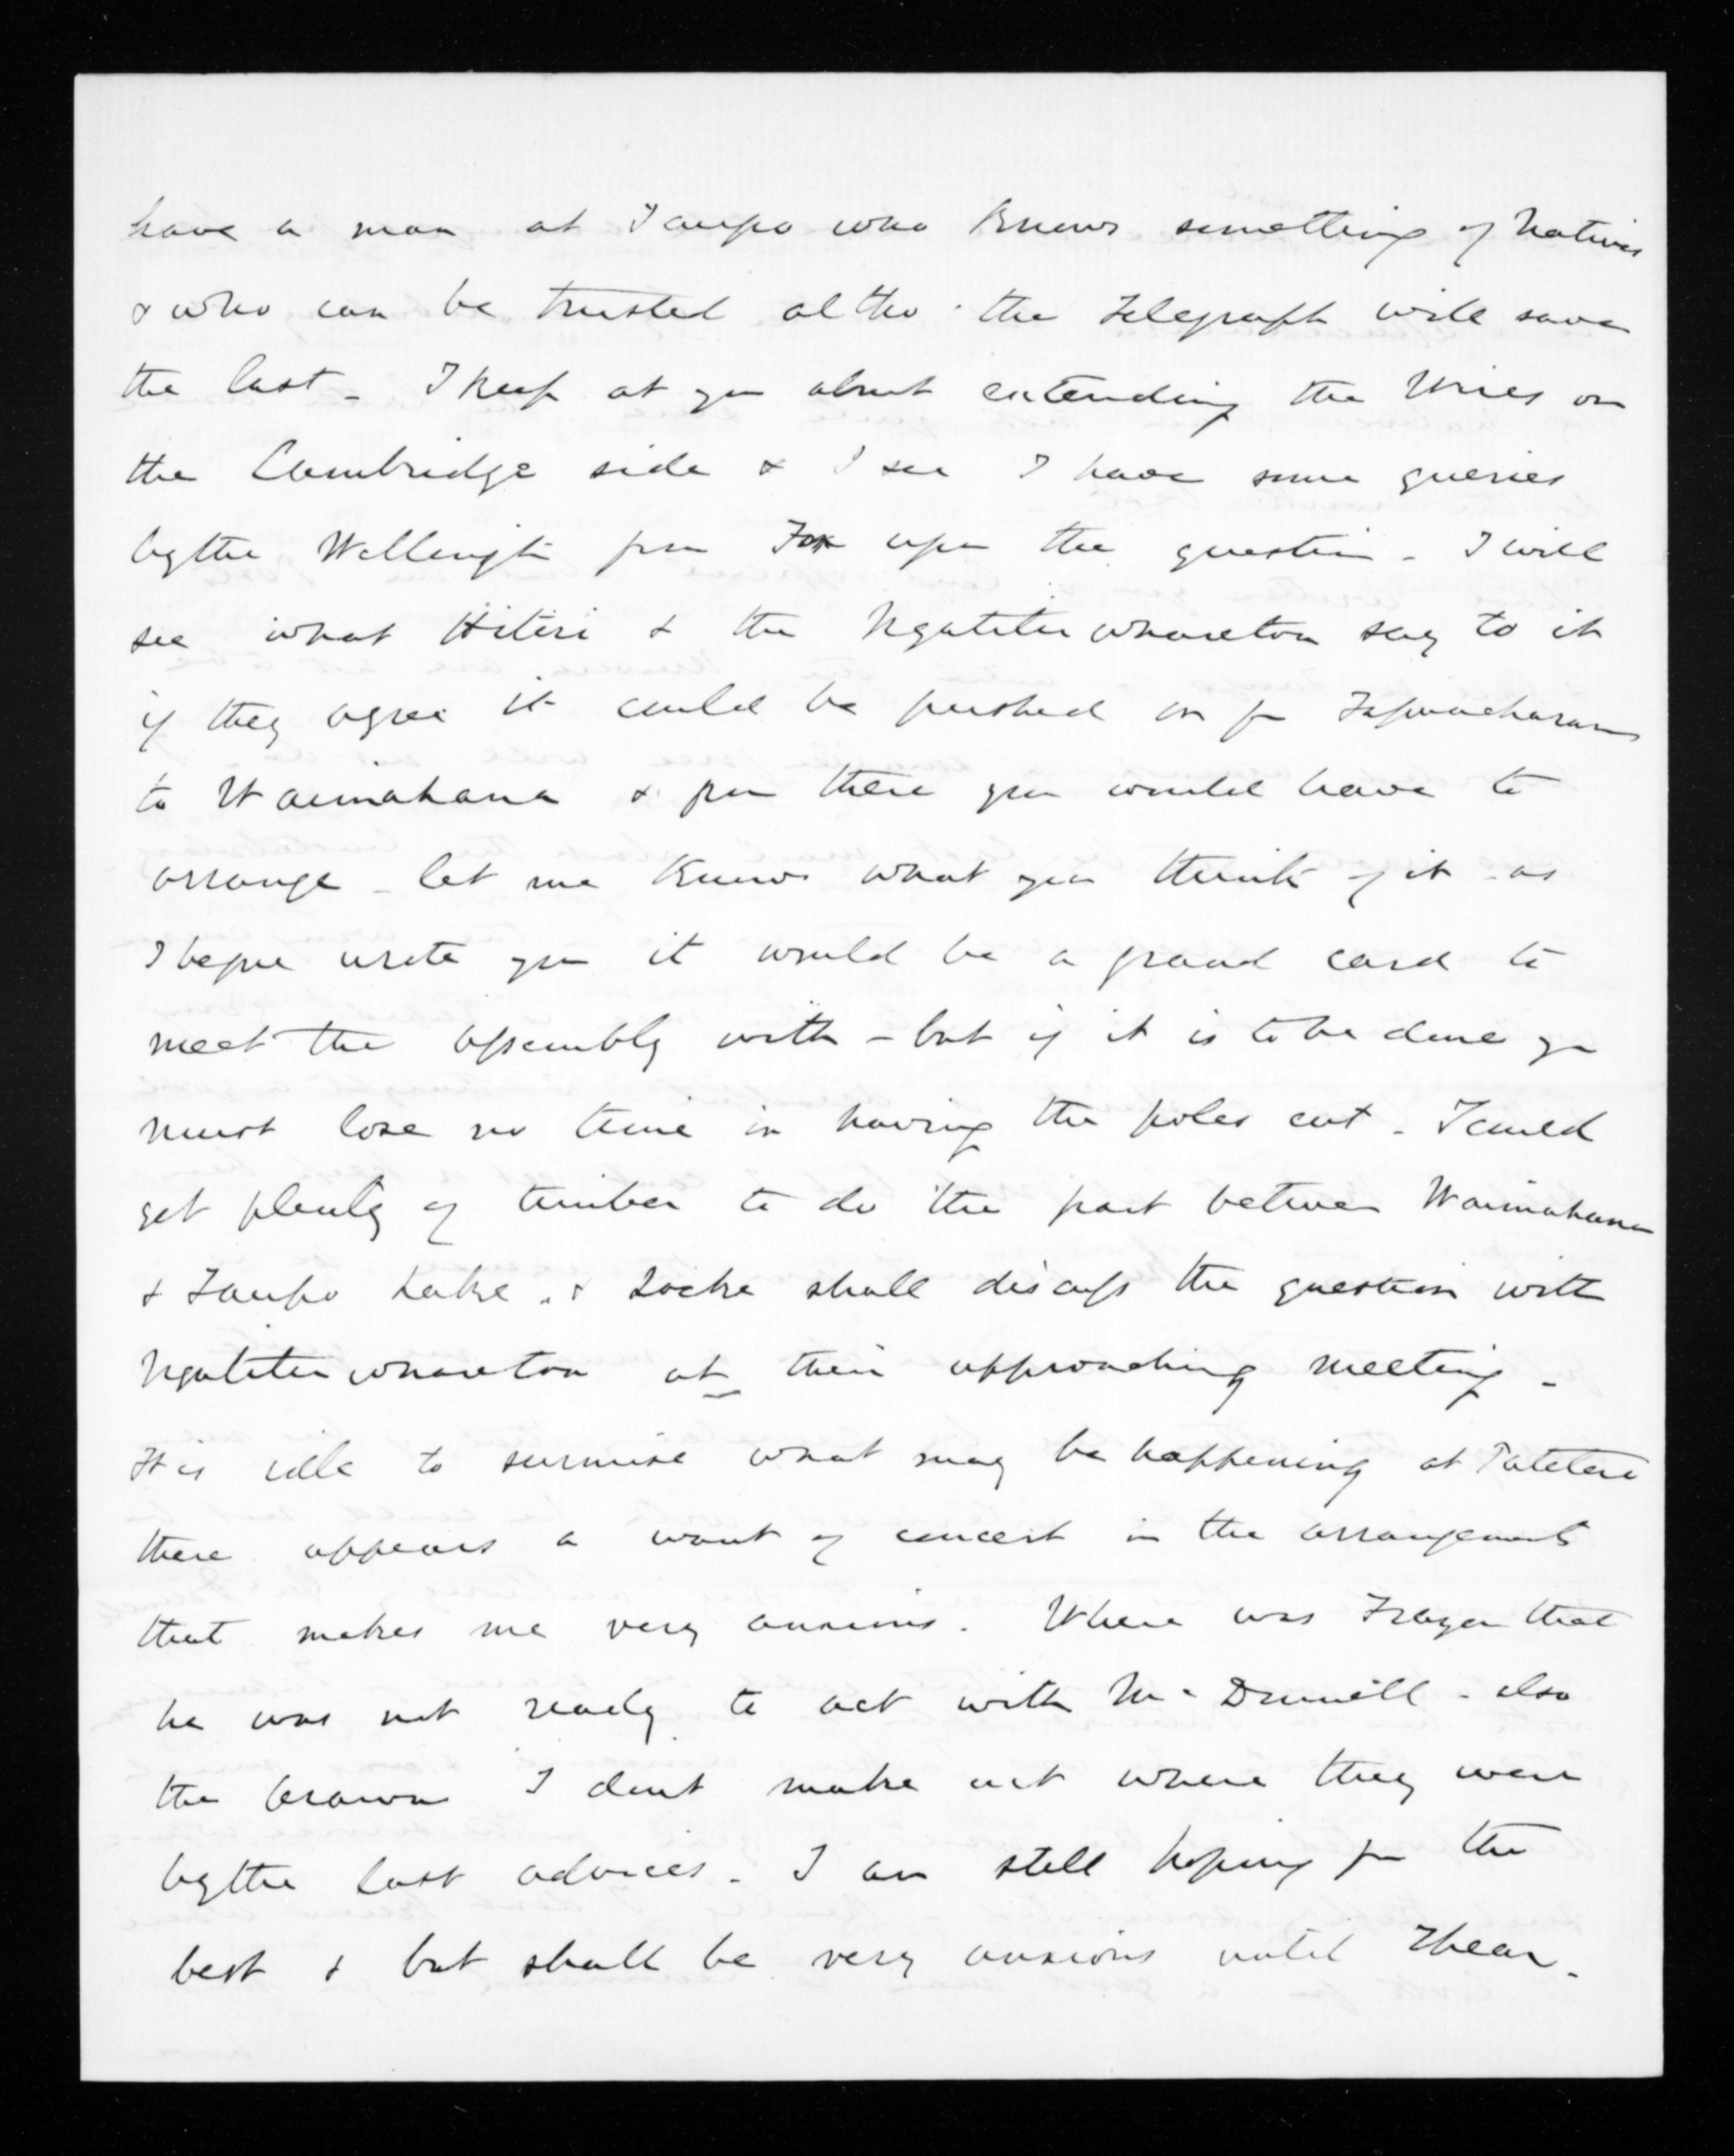 have a man at Taupo who knows something of Natives
& who can be trusted altho' the Telegraph will save
the last _ I keep at you about extending the Wires on
the Cambridge side & I see I have some queries
by the Wellington from Fox upon the question _ I will
see what Hitiri & the Ngatitewharetoa say to it
if they agree it could be pushed on from Tapuaeharuru
to Waimahana & from there you would have to
arrange _ let me know what you think of it - as
I before wrote you it would be a grand card to
meet the Assembly with - but if it is to be done you
must lose no time in having the poles cut _ I could
get plenty of timber to do the part between Waimahana
& Taupo Lake . & Locke shall discuss the question with
Ngatitewharetoa at their approaching meeting _
It is idle to surmise what may be happening at Patetere
there appears a want of concert in the arrangements
that makes me very anxious . Where was Frazer that
he was not ready to act with McDonnell - also
the Arawa I dont make out where they were
by the last advices _ I am still hoping for the
best & but shall be very anxious until I hear _